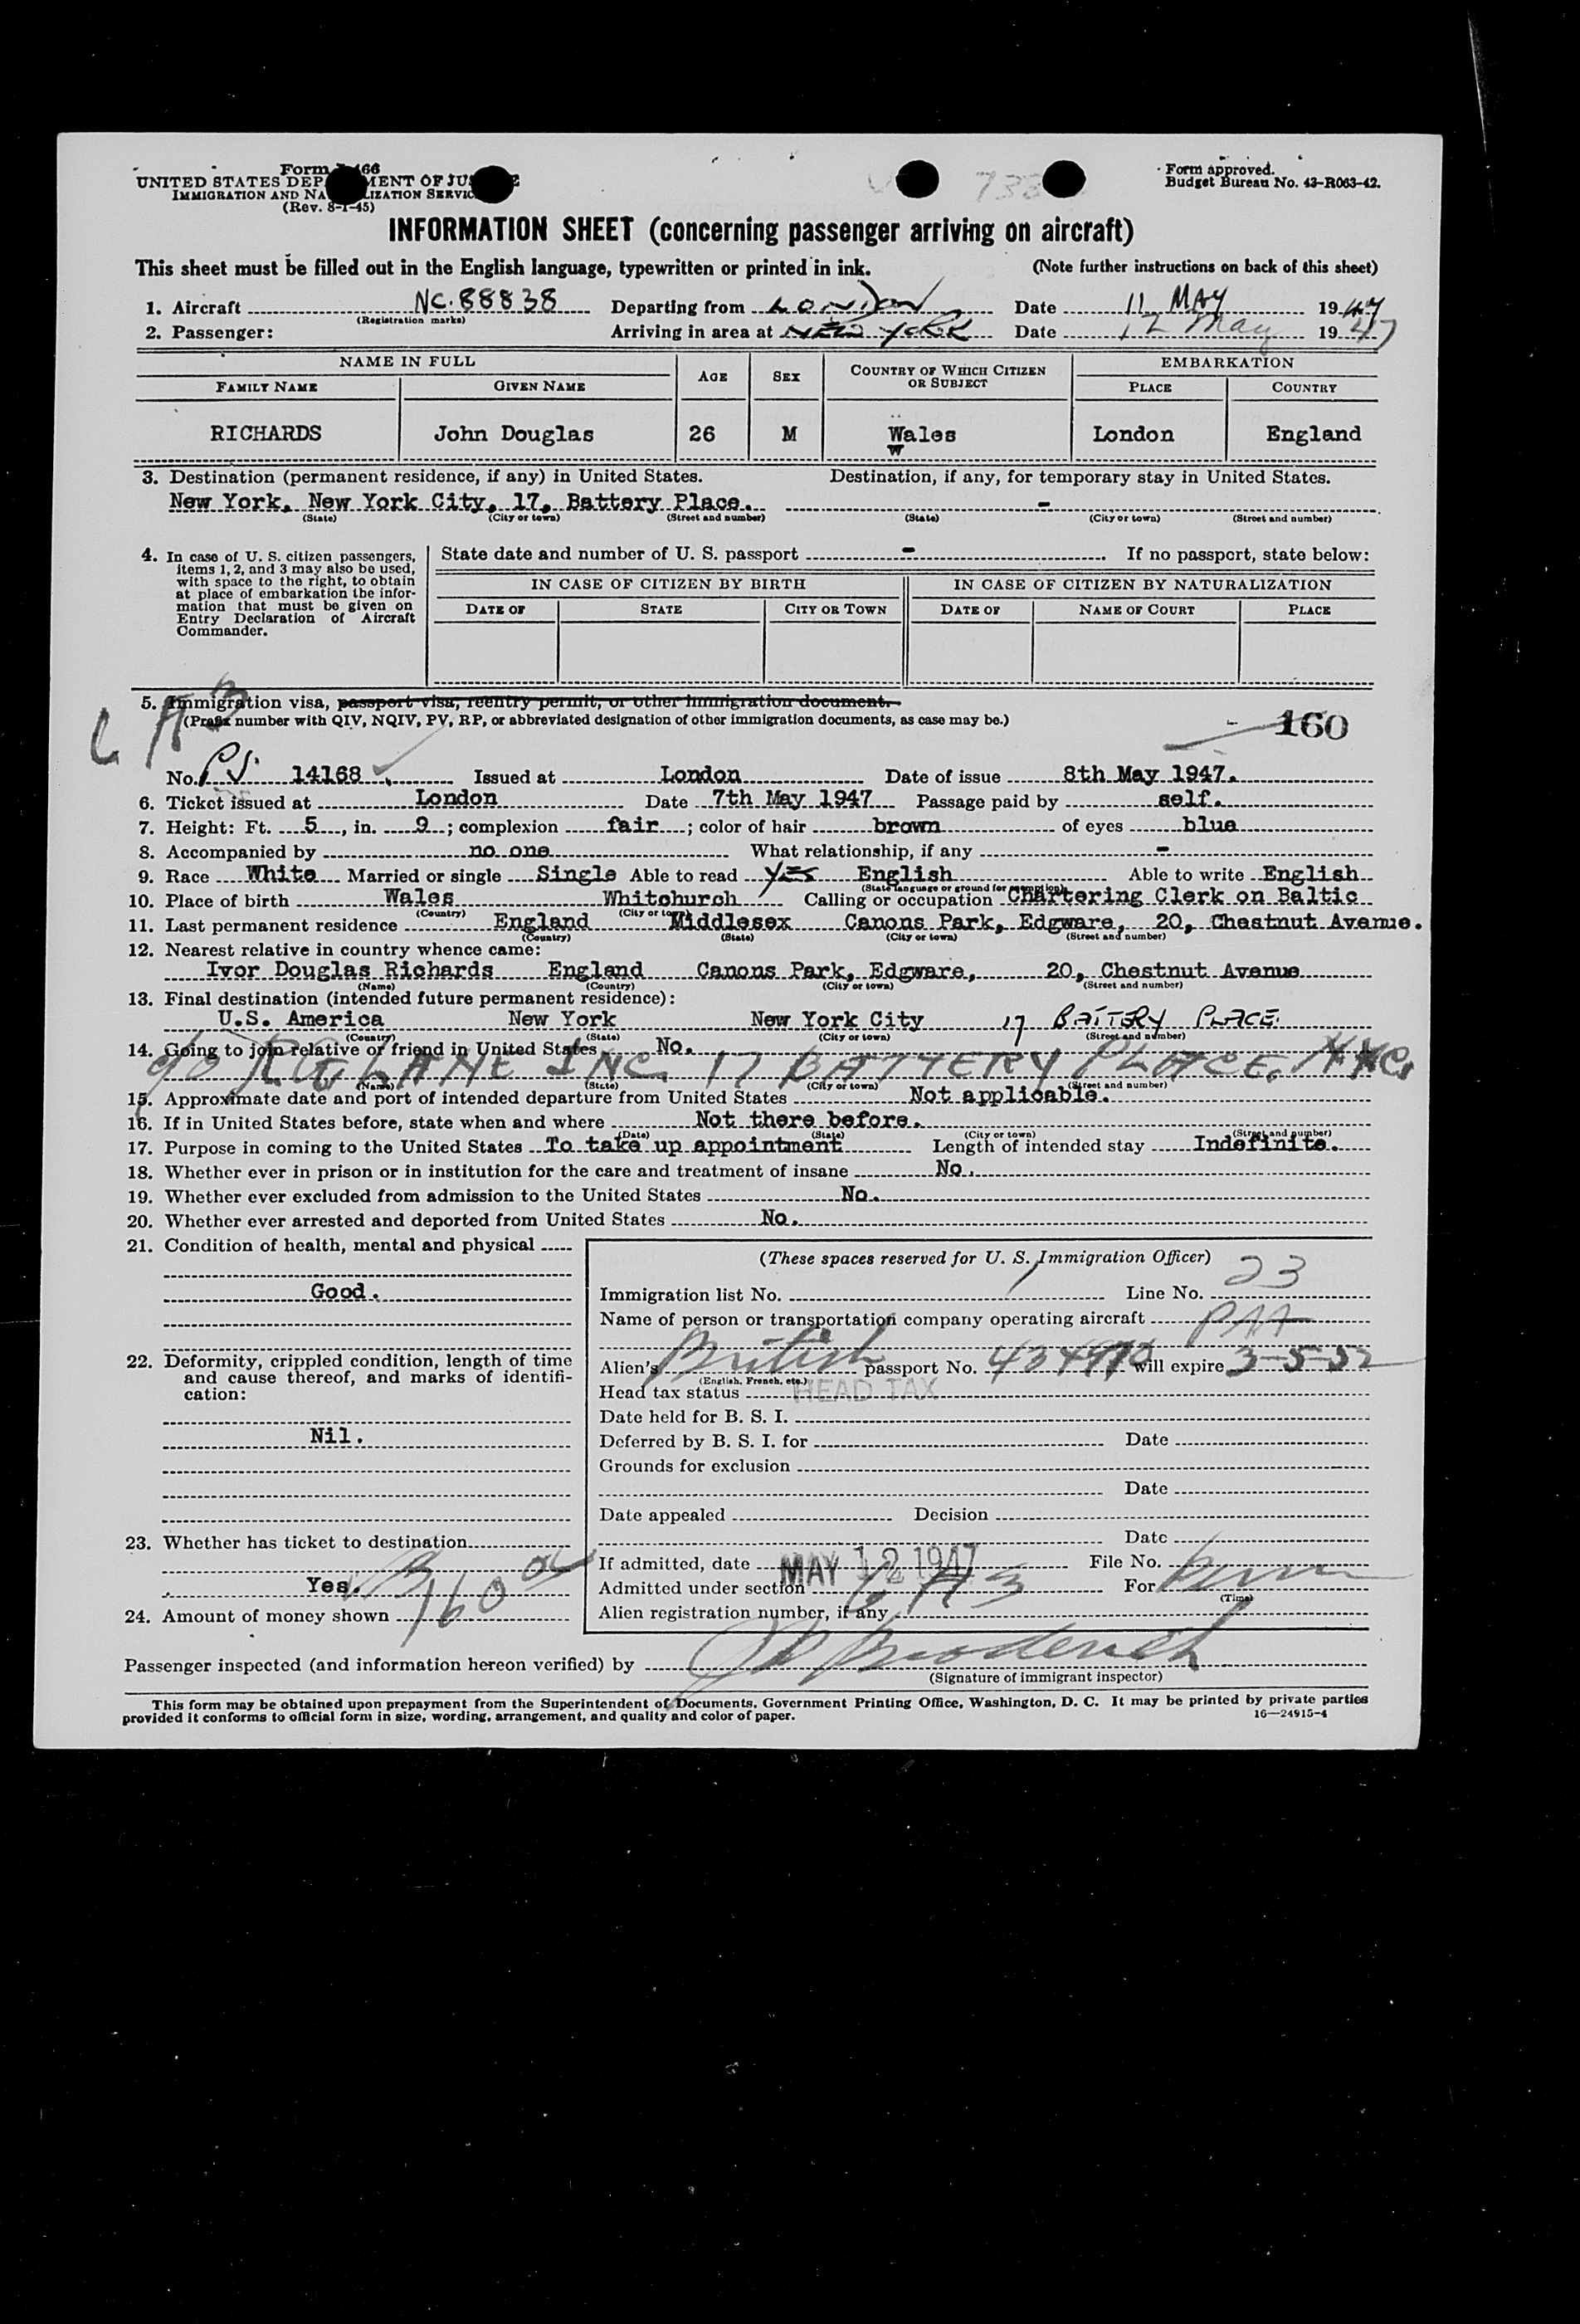 Form 466
UNITED STATES DEPARTMENT OF JUSTICE
IMMIGRATION AND NATURALIZATION SERVICE
(Rev. 8-1-45)
733
Form approved.
Budget Bureau No. 43-R063-42.
INFORMATION SHEET (concerning passenger arriving on aircraft)
This sheet must be filled out in the English language, typewritten or printed in ink. (Note further instructions on back of this sheet)
1. Aircraft NC.88838 Departing from LONDON Date 11 MAY 1947
(Registration marks)
2. Passenger: Arriving in area at NEW YORK Date 12 May 1947
NAME IN FULL AGE SEX COUNTRY OF WHICH CITIZEN OR SUBJECT EMBARKATION
FAMILY NAME GIVEN NAME PLACE COUNTRY
RICHARDS John Douglas 26 M Wales London England
W
3. Destination (permanent residence, if any) in United States. Destination, if any, for temporary stay in United States.
New York, New York City, 17, Battery Place. -
(State) (City or town) (Street and number) (State) (City or town) (Street and number)
4. In case of U. S. citizen passengers, items 1, 2, and 3 may also be used, with space to the right, to obtain at place of embarkation the information that must be given on Entry Declaration of Aircraft Commander.
State date and number of U. S. passport - If no passport, state below:
IN CASE OF CITIZEN BY BIRTH IN CASE OF CITIZEN BY NATURALIZATION
DATE OF STATE CITY OR TOWN DATE OF NAME OF COURT PLACE
5. Immigration visa, passport visa, reentry permit, or other immigration document.
(Prefix number with QIV, NQIV, PV, RP, or abbreviated designation of other immigration documents, as case may be.)
6 A3
160
No. 14168 Issued at London Date of issue 8th May 1947.
6. Ticket issued at London Date 7th May 1947 Passage paid by self.
7. Height: Ft. 5, in. 9; complexion fair; color of hair brown of eyes blue
8. Accompanied by no one What relationship, if any -
9. Race White Married or single Single Able to read YES English Able to write English
(State language or ground for exemption)
10. Place of birth Wales Whitchurch Calling or occupation Chartering Clerk on Baltic
(Country) (City or town)
11. Last permanent residence England Middlesex Canons Park, Edgware, 20, Chestnut Avenue.
(Country) (State) (City or town) (Street and number)
12. Nearest relative in country whence came:
Ivor Douglas Richards England Canons Park, Edgware, 20, Chestnut Avenue
(Name) (Country) (City or town) (Street and number)
13. Final destination (intended future permanent residence):
U.S. America New York New York City 17 BATTERY PLACE.
(Country) (State) (City or town) (Street and number)
14. Going to join relative or friend in United States No.
INC. 17 BATTERY PLACE, NYC.
(Name) (State) (City or town) (Street and number)
15. Approximate date and port of intended departure from United States Not applicable.
16. If in United States before, state when and where Not there before.
(Date) (State) (City or town) (Street and number)
17. Purpose in coming to the United States To take up appointment Length of intended stay Indefinite.
18. Whether ever in prison or in institution for the care and treatment of insane No.
19. Whether ever excluded from admission to the United States No.
20. Whether ever arrested and deported from United States No.
21. Condition of health, mental and physical
Good.
22. Deformity, crippled condition, length of time and cause thereof, and marks of identification:
Nil.
23. Whether has ticket to destination
Yes.
24. Amount of money shown 160
(These spaces reserved for U. S. Immigration Officer)
Immigration list No. 1 Line No. 23
Name of person or transportation company operating aircraft PAA
Alien's British passport No. 434970 will expire 3-5-52
(English, French, etc.)
Head tax status HEAD TAX
Date held for B. S. I.
Deferred by B. S. I. for Date
Grounds for exclusion
Date
Date appealed Decision
Date
If admitted, date MAY 12 1947 File No.
Admitted under section 6 A 3 For Perm
(Time)
Alien registration number, if any
Passenger inspected (and information hereon verified) by
(Signature of immigrant inspector)
This form may be obtained upon prepayment from the Superintendent of Documents, Government Printing Office, Washington, D. C. It may be printed by private parties
provided it conforms to official form in size, wording, arrangement, and quality and color of paper.
16—24915-4